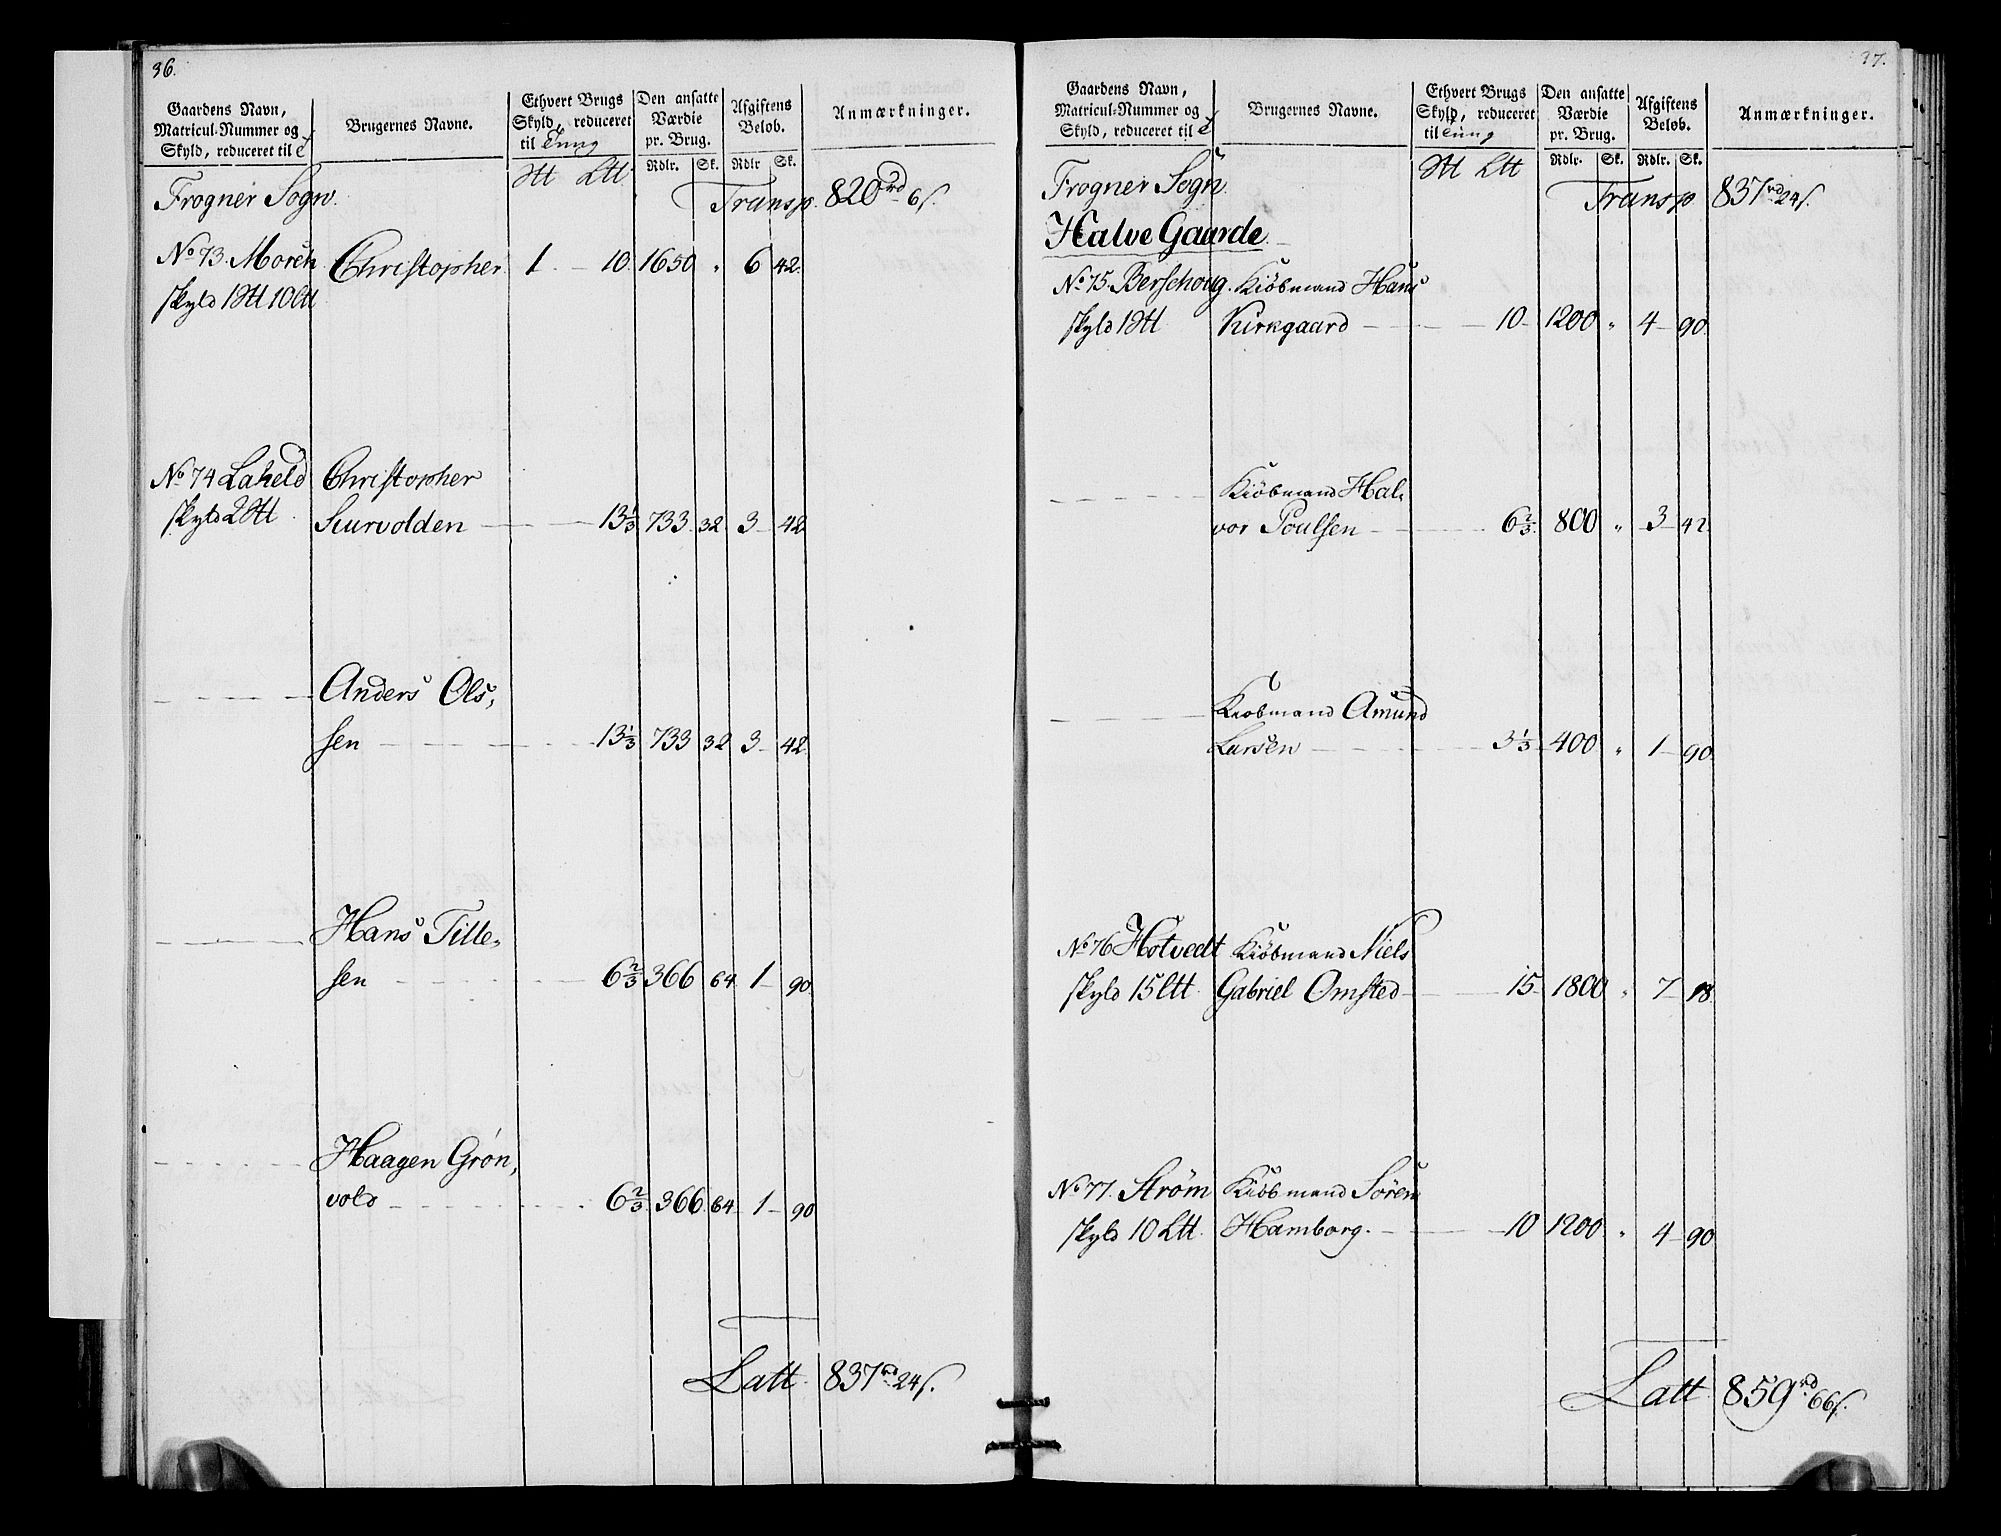 36.
Gaardens Navn, Matricul-Nummer og Skyld, reduceret til
Brugernes Navne.
Ethvert Brugs Skyld, reduceret til Tung
Den ansatte Værdie pr. Brug.
Afgiftens Beløb.
Anmærkninger.
Rdlr. Sk. Rdlr Sk.
Frogner Sogn. Transp. 820 rd 6 s.
No 73. Morch Christopher 1. 10. 1650 " 6 42.
skyld 1 Stt 10 Ltt
No 74 Laheld Christopher
skyld 2 Stt Scurvolden 13 1/3 733 32 3 42
Anders Ols,
sen 13 1/3 733 32 3 42
Hans Tille,
sen 6 2/3 366 64 1 90
Haagen Grøn,
vold 6 2/3 366 64 1 90
Latt. 837 rd 24 s.
37.
Gaardens Navn, Matricul-Nummer og Skyld, reduceret til
Brugernes Navne.
Ethvert Brugs Skyld, reduceret til Tung
Den ansatte Værdie pr. Brug.
Afgiftens Beløb.
Anmærkninger.
Rdlr. Sk. Rdlr. Sk.
Frogner Sogn Transp 837 rd 24 s.
Halve Gaarde
No 75. Berschoug. Kiöbmand Hans
skyld 1 Stt Kirkgaard 10 1200 " 4 90.
Kiöbmand Hal,
vor Poulsen 6 2/3 800 " 3 42
Kiobmand Amund
Larsen 3 1/3 400 " 1 90.
No 76 Hotvedt Kiöbmand Niels
skyld 15 Ltt Gabriel Omsted 15 1800 " 7 18.
No 77. Strøm Kiöbmand Sören
skyld 10 Ltt. Hamborg. 10 1200 " 4 90
Latt 859 rd 66 s.